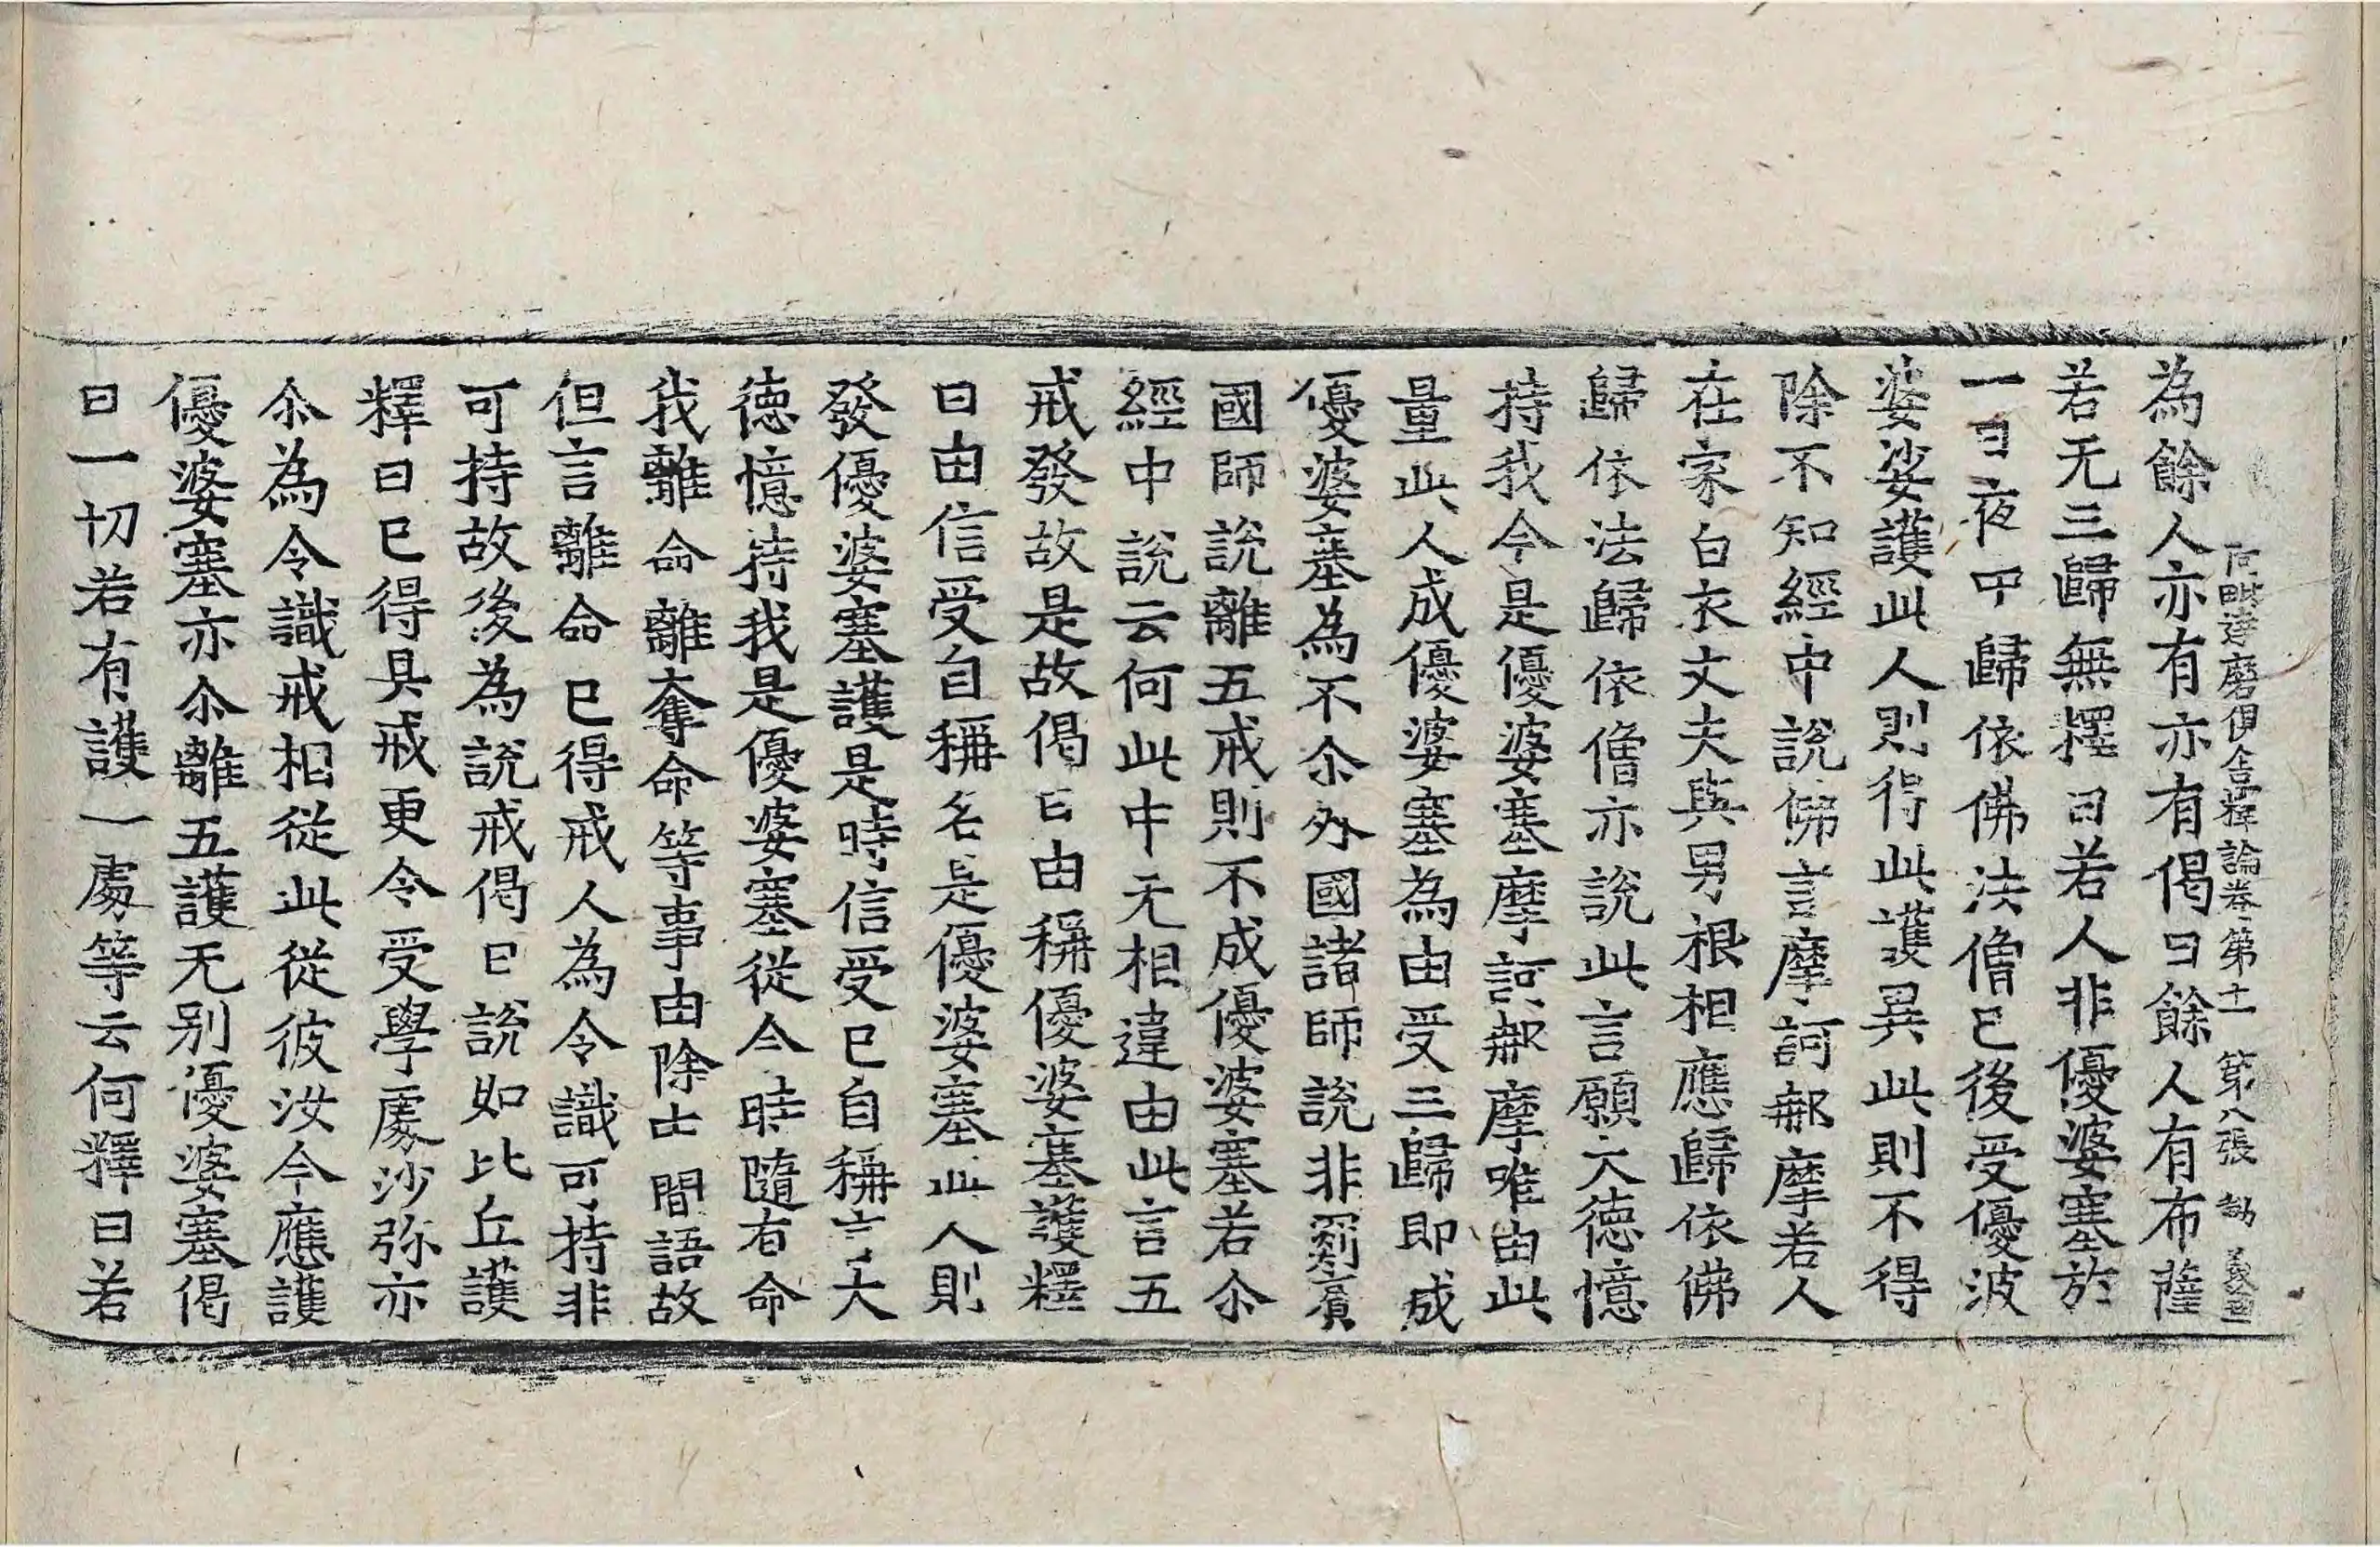 阿毗達磨俱舍釋論卷第十一 第八張 刼
為餘人亦有亦有偈曰餘人有布薩
若无三歸無釋曰若人非優婆塞於
一日夜中歸依佛法僧已後受優波
婆娑護此人則得此護異此則不得
除不知經中說佛言摩訶㖠摩若人
在家白衣丈夫與男根相應歸依佛
歸依法歸依僧亦說此言願大德憶
持我今是優婆塞摩訶㖠摩唯由此
量此人成優婆塞為由受三歸即成
優婆塞為不尒外國諸師說非罽賓
國師說離五戒則不成優婆塞若尒
經中說云何此中无相違由此言五
戒發故是故偈曰由稱優婆塞護釋
曰由信受自稱名是優婆塞此人則
發優婆塞護是時信受已自稱言大
德憶持我是優婆塞從今時隨有命
我離命離奪命等事由除中間語故
但言離命已得戒人為令識可持非
可持故後為說戒偈曰說如比丘護
釋曰已得具戒更令受學處沙弥亦
尒為令識戒相從此從彼汝今應護
優婆塞亦尒離五護无別優婆塞偈
曰一切若有護一處等云何釋曰若